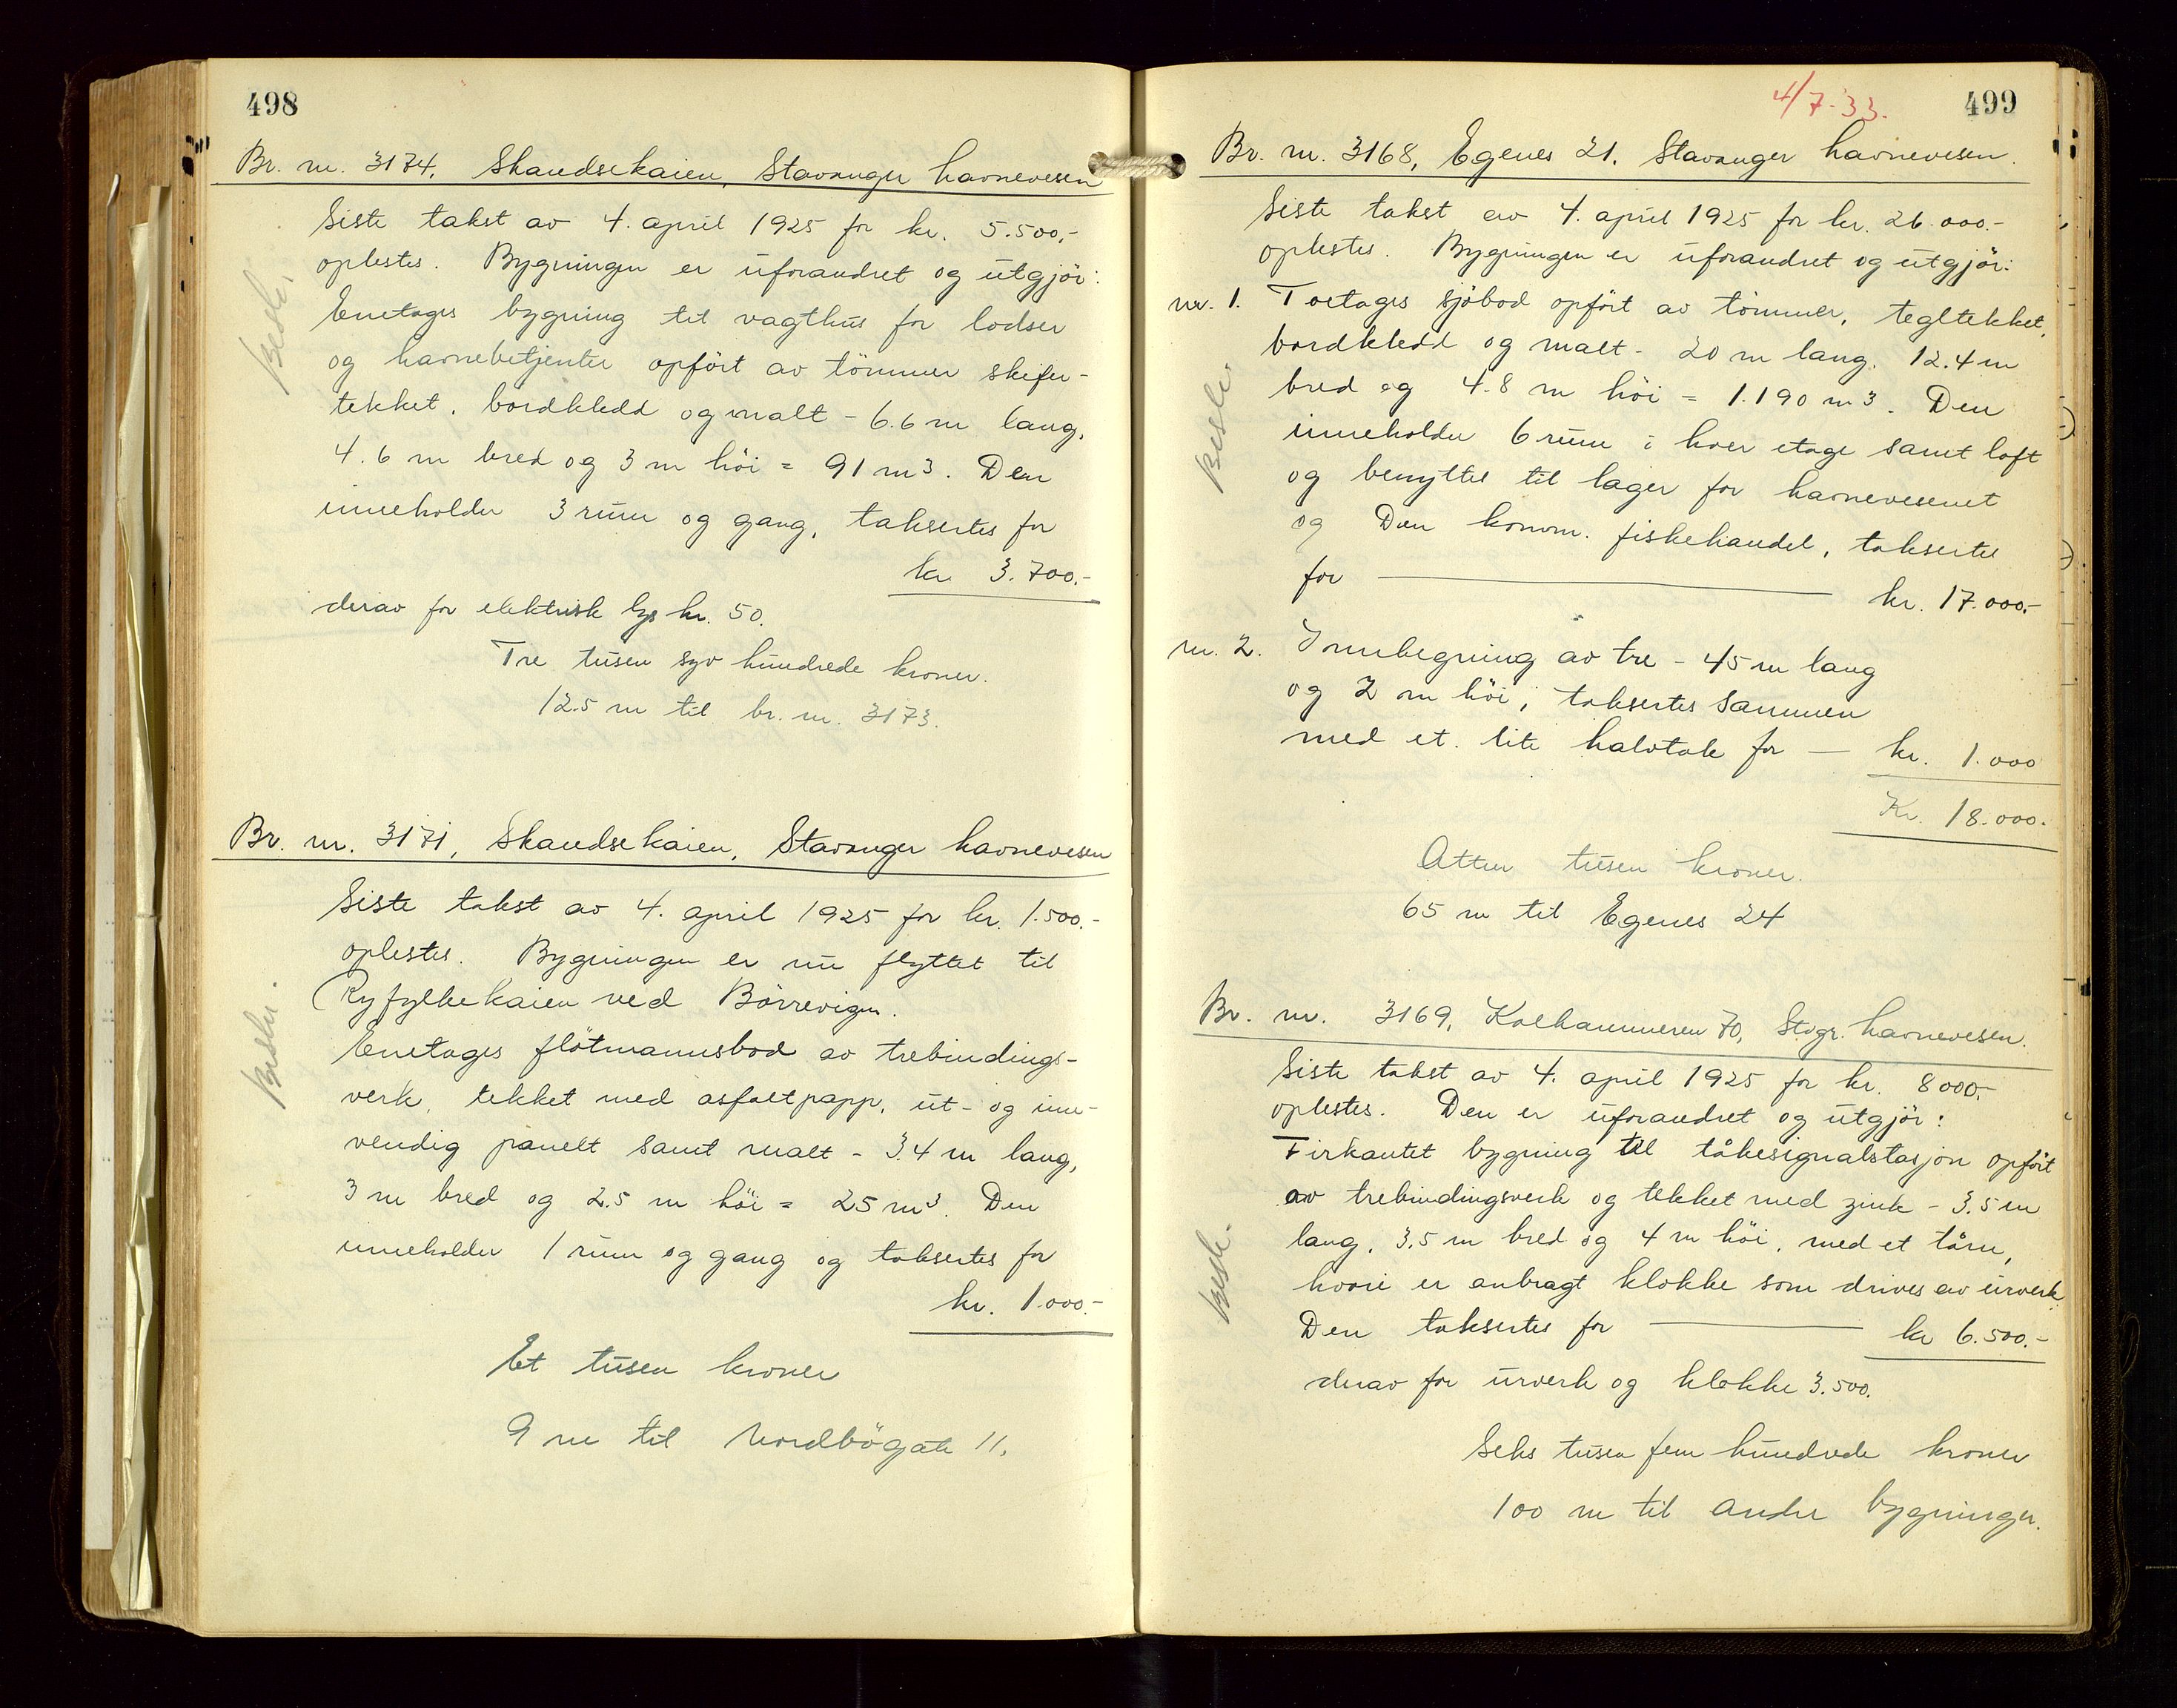 498
Br. nr. 3174, Skandsekaien, Stavanger havnevesen
Siste takst av 4. april 1925 for kr. 5.500,-
oplestes. Bygningen er uforandret og utgjör:
Enetages bygning til vagthus for lodser
og havnebetjenter opfört av tömmer skifer-
tekket, bordkledd og malt - 6.6 m lang,
4.6 m bred og 3 m höi = 91 m3. Den
inneholder 3 rum og gang, taksertes for
kr. 3.700.-
derav for elektrisk lys kr. 50.
Tre tusen syv hundrede kroner.
12.5 m til br. nr. 3173.
Br. nr. 3171, Skandsekaien, Stavanger havnevesen
Siste takst av 4. april 1925 for kr. 1.500.-
oplestes. Bygningen er nu flyttet til
Ryfylkekaien ved Börrevigen.
Enetages flötmannsbod av trebindings-
verk, tekket med asfaltpapp, ut- og inn-
vendig panelt samt malt - 3.4 m lang,
3 m bred og 2.5 m höi = 25 m3. Den
inneholder 1 rum og gang og taksertes for
kr. 1.000.-
Et tusen kroner
9 m til Nordbögate 11.
4/7-33.
499
Br. nr. 3168, Egenes 21. Stavanger havnevesen.
Siste takst av 4. april 1925 for kr. 26.000.-
oplestes. Bygningen er uforandret og utgjör:
nr. 1. Toetages sjöbod opfört av tömmer, tegltekket,
bordkledd og malt - 20 m lang, 12.4 m
bred og 4.8 m höi = 1.190 m3. Den
inneholder 6 rum i hver etage samt loft
og benyttes til lager for havnevesenet
og Den komm. fiskehandel, taksertes
for kr. 17.000.-
nr. 2. Innhegning av tre - 45 m lang
og 2 m höi, taksertes sammen
med et lite halvtak for - kr. 1.000
Kr. 18.000.
Atten tusen kroner.
65 m til Egenes 24
Br. nr. 3169, Kalhammeren 70, Stvgr. havnevesen.
Siste takst av 4. april 1925 for kr. 8000.-
oplestes. Den er uforandret og utgjör:
Firkantet bygning til tåkesignalstasjon opfört
av trebindingsverk og tekket med zink - 3.5 m
lang, 3.5 m bred og 4 m höi, med et tårn,
hvori er anbragt klokke som drives av urverk.
Den taksertes for kr 6.500.-
derav for urverk og klokke 3.500.
Seks tusen fem hundrede kroner
100 m til andre bygninger.